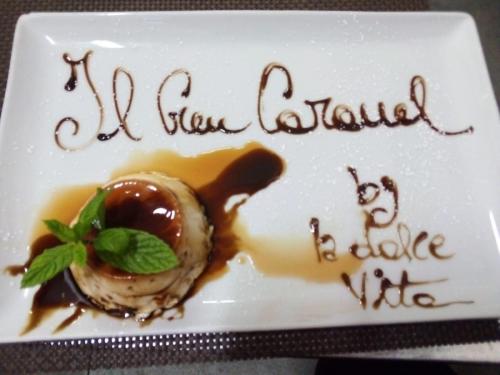 Il Gran Caramel
by
la dolce
Vita